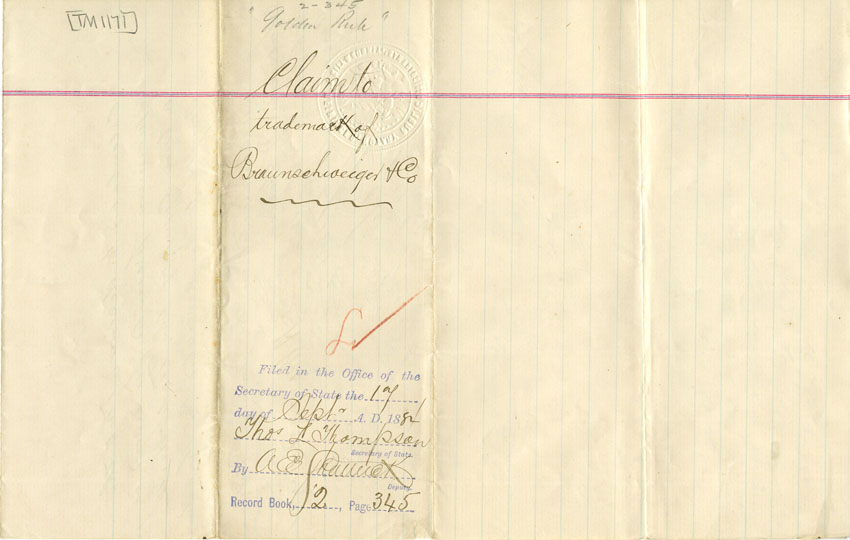 [TM1171]
2-345
"Golden Rule"
Claim to
trademark of
Braunschweiger & Co
Filed in the Office of the
Secretary of State the 17
day of Sept A. D. 188
Thos L Thompson
Secretary of State.
By A E
Deputy.
Record Book, 2, Page 345